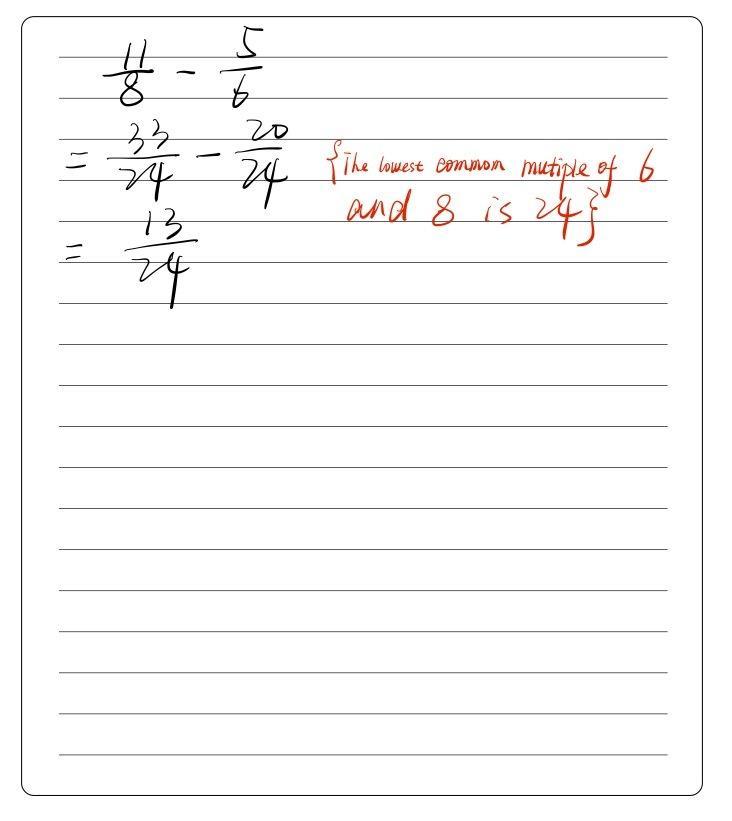 11/8 - 5/6
= 33/24 - 20/24 {The lowest common mutiple of 6
and 8 is 24}
= 13/24